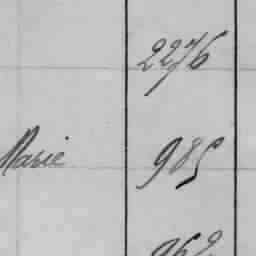 2276
Marie 985
962